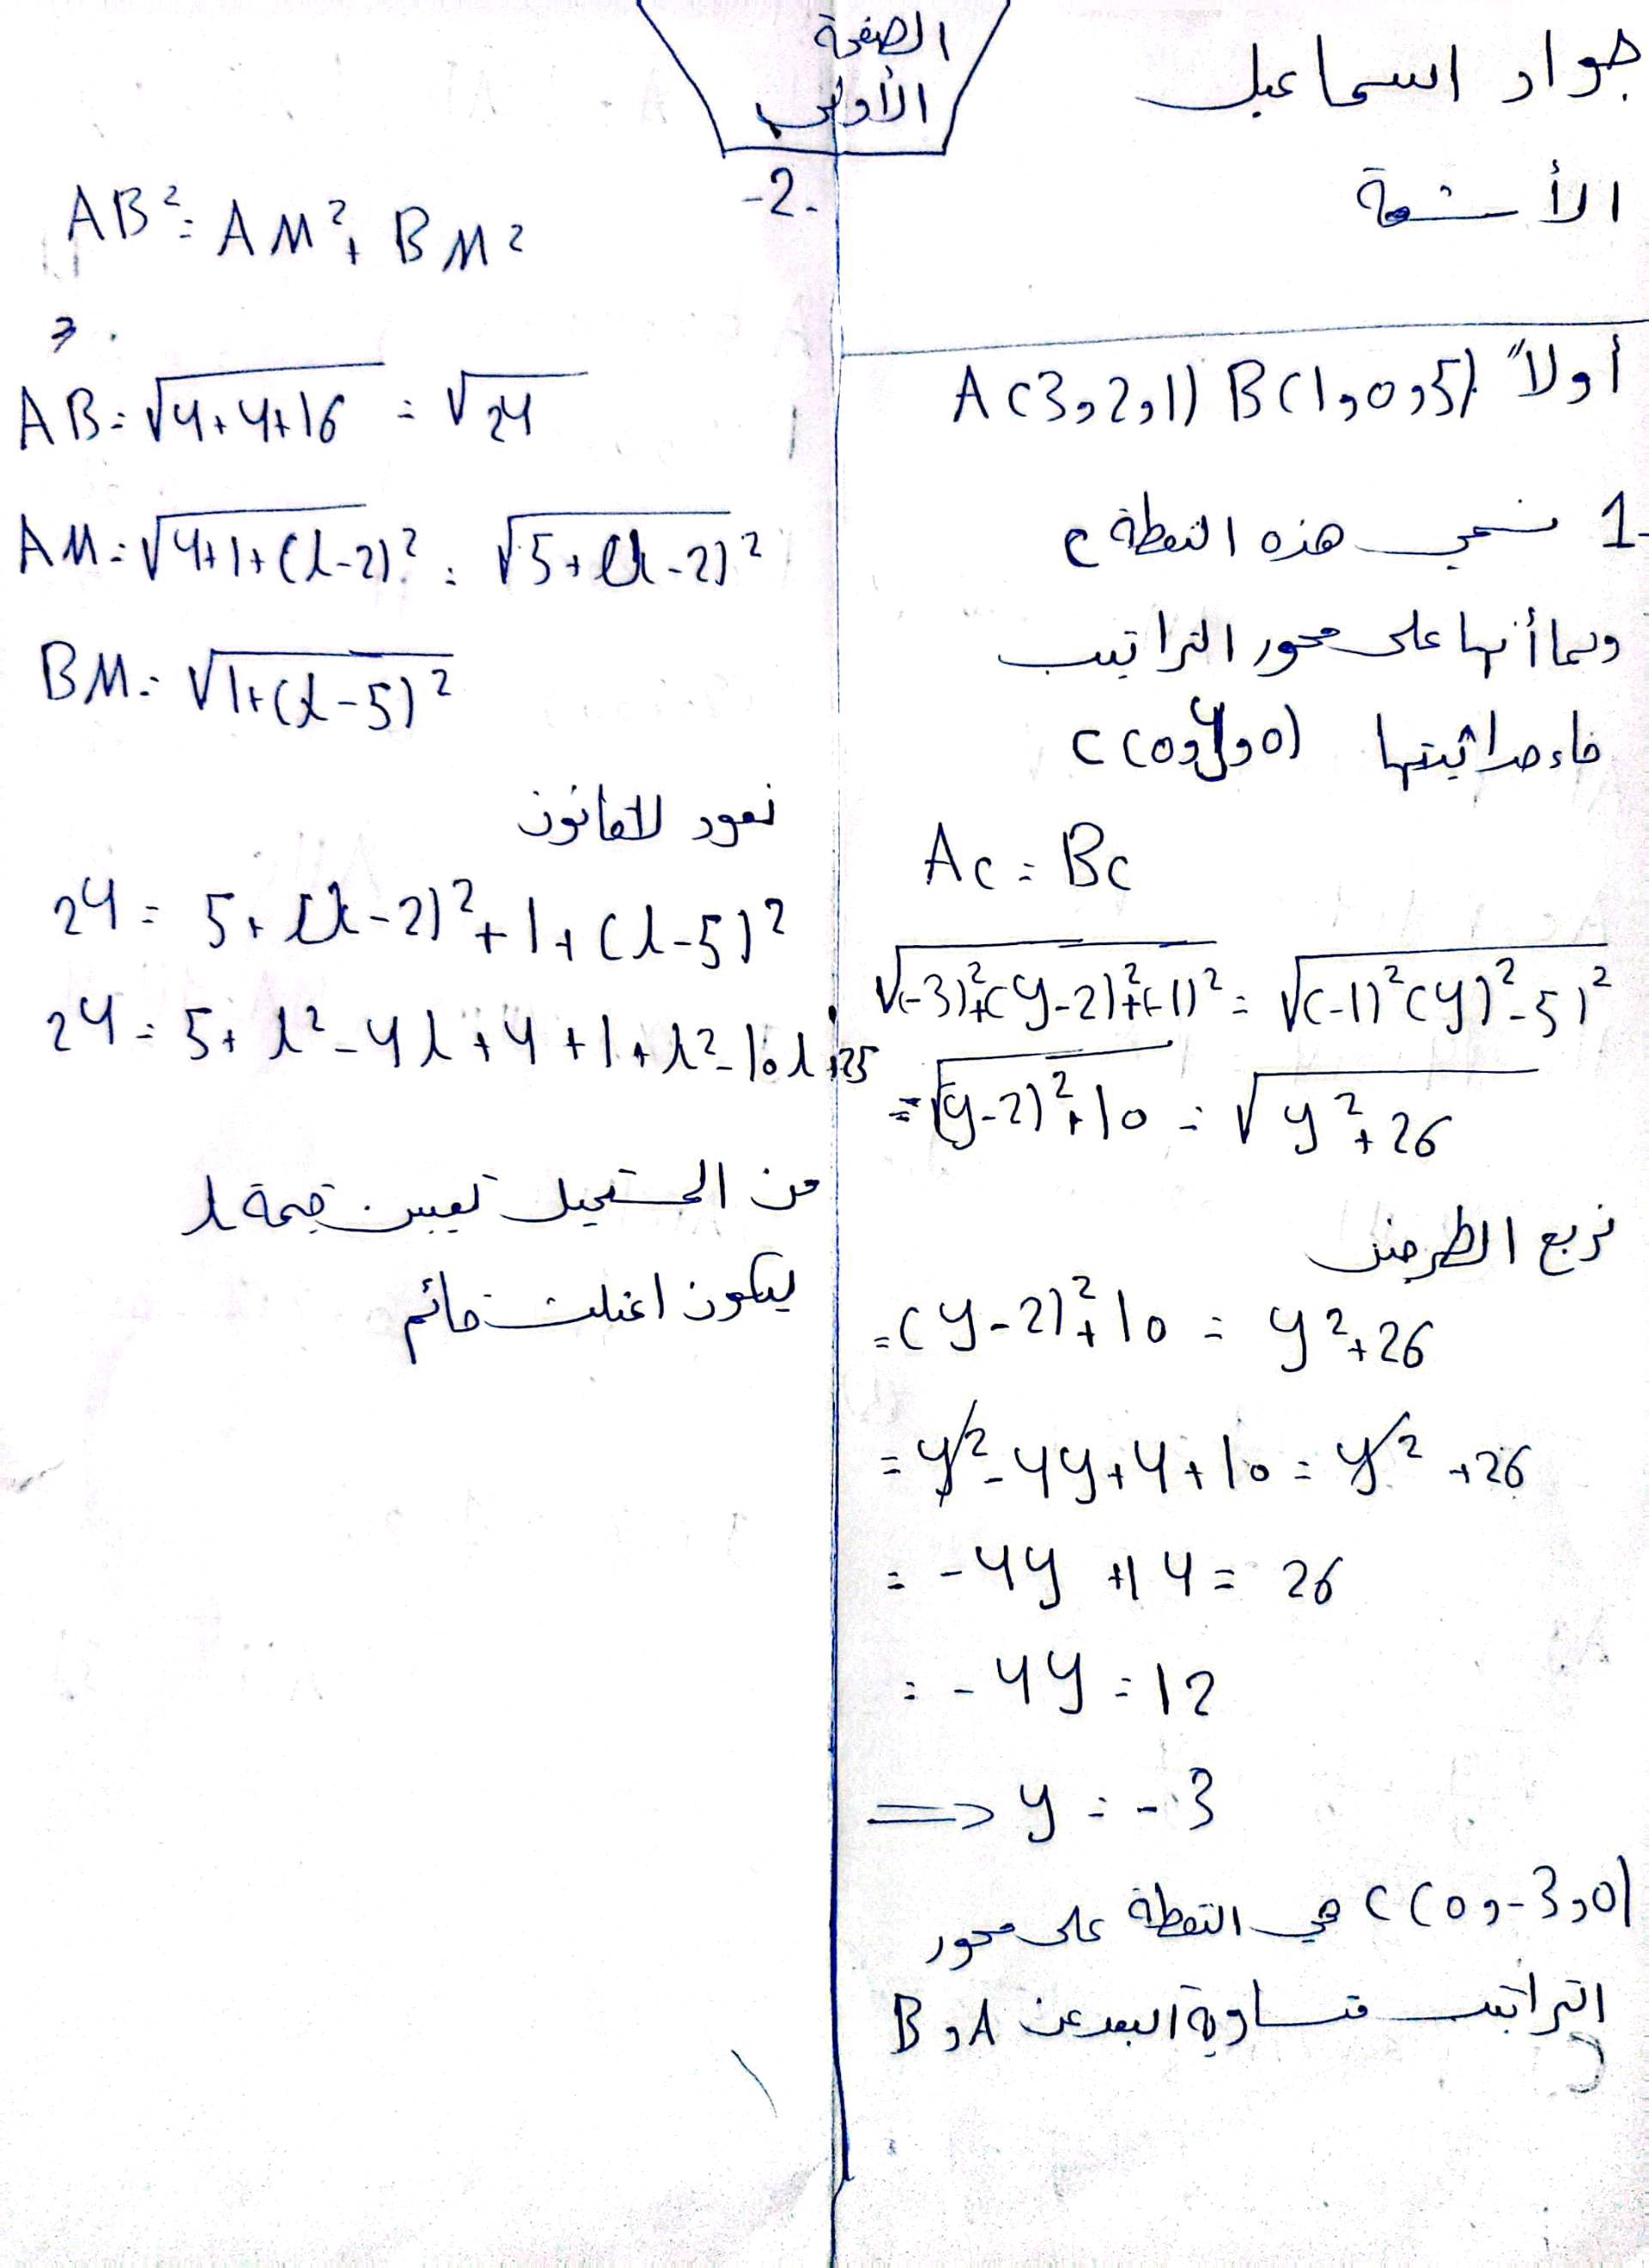 جواد اسماعيل
الصفحة
الأولى
الأشعة
أولاً" A(3,2,1) B(1,0,5)
1- نسمي هذه النقطة C
وبما أنها على محور التراتيب
C(0,y,0)
AC = BC
√(-3)²+(y-2)²+(-1)² = √(-1)²(y)²-5)²
= √(y-2)²+10 = √y²+26
نربع الطرفين
= (y-2)²+10 = y²+26
= y²-4y+4+10 = y²+26
= -4y+14 = 26
= -4y = 12
=> y = -3
C(0,-3,0) هي النقطة على محور
التراتيب متساوية البعد عن A و B
-2-
AB² = AM² + BM²
AB = √4+4+16 = √24
AM = √4+1+(λ-2)² = √5+(λ-2)²
BM = √1+(λ-5)²
نعود للقانون
24 = 5+(λ-2)²+1+(λ-5)²
24 = 5+λ²-4λ+4+1+λ²-10λ+25
من المستحيل تعيين قيمة λ
ليكون المثلث قائم